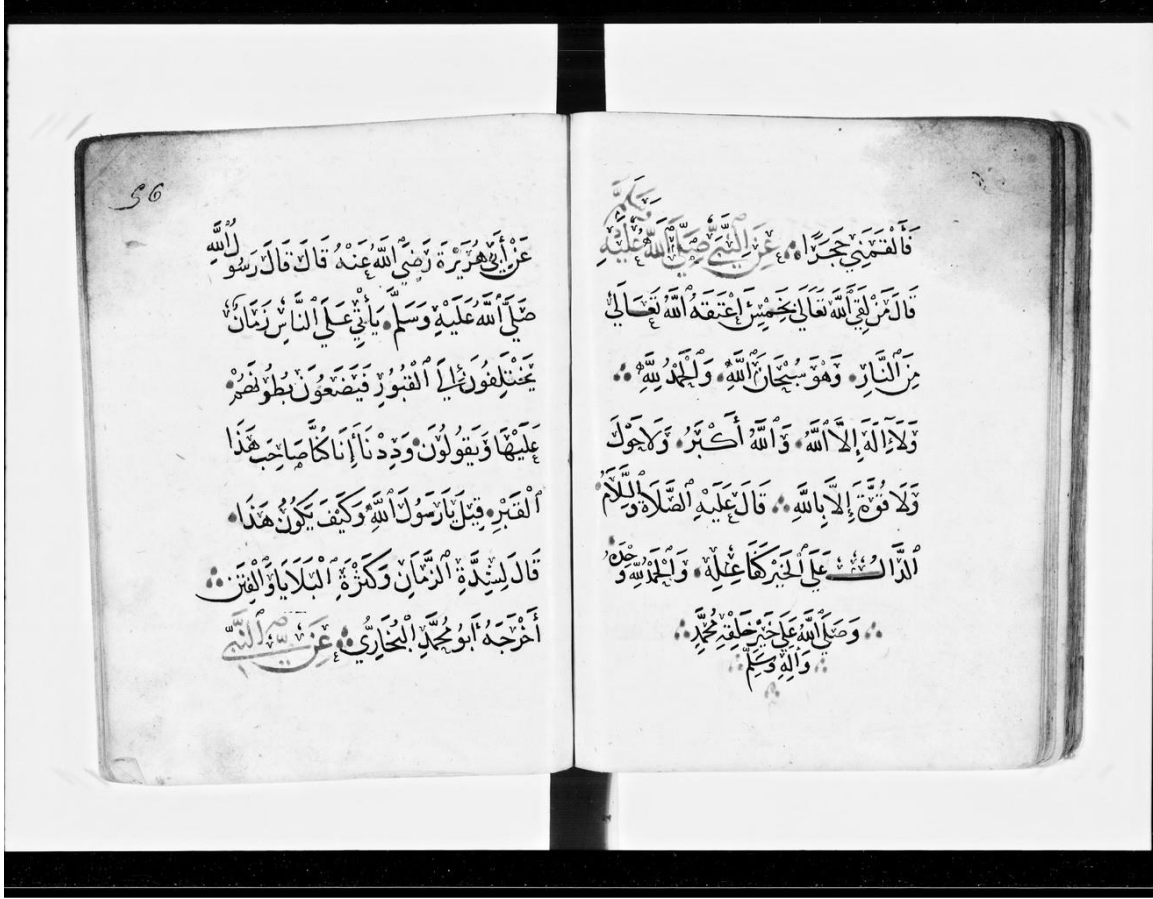 فَأَلْقَمَنِي حَجَرًا عَنِ ٱلنَّبِيِّ صَلَّى ٱللَّهُ عَلَيْهِ وَسَلَّمَ
قَالَ مَنْ لَقِيَ ٱللَّهَ تَعَالَى بِخَمْسٍ اعْتَقَهُ ٱللَّهُ تَعَالَى
مِنَ ٱلنَّارِ وَهْوَ سُبْحَانَ ٱللَّهِ وَٱلْحَمْدُ لِلَّهِ
وَلَا إِلَهَ إِلَّا ٱللَّهُ وَٱللَّهُ أَكْبَرُ وَلَا حَوْلَ
وَلَا قُوَّةَ إِلَّا بِاللَّهِ قَالَ عَلَيْهِ ٱلصَّلَاةُ وَٱلسَّلَامُ
ٱلدَّالُّ عَلَى ٱلْخَيْرِ كَفَاعِلِهِ وَٱلْحَمْدُ لِلَّهِ وَحْدَهُ
وَصَلَّى ٱللَّهُ عَلَى خَيْرِ خَلْقِهِ مُحَمَّدٍ
وَآلِهِ وَسَلِّمْ
56
عَنْ أَبِي هُرَيْرَةَ رَضِيَ ٱللَّهُ عَنْهُ قَالَ قَالَ رَسُولُ ٱللَّهِ
صَلَّى ٱللَّهُ عَلَيْهِ وَسَلَّمَ يَأْتِي عَلَى ٱلنَّاسِ زَمَانٌ
يَخْتَلِفُونَ إِلَى ٱلْقُبُورِ فَيَضَعُونَ بُطُونَهُمْ
عَلَيْهَا وَيَقُولُونَ وَدِدْنَا أَنَا كُنَّا صَاحِبَ هَذَا
ٱلْقَبْرِ قِيلَ يَا رَسُولَ ٱللَّهِ وَكَيْفَ يَكُونُ هَذَا
قَالَ لِشِدَّةِ ٱلزَّمَانِ وَكَثْرَةِ ٱلْبَلَايَا وَٱلْفِتَنِ
أَخْرَجَهُ أَبُو مُحَمَّدٍ ٱلْبُخَارِيُّ عَنِ ٱلنَّبِيِّ